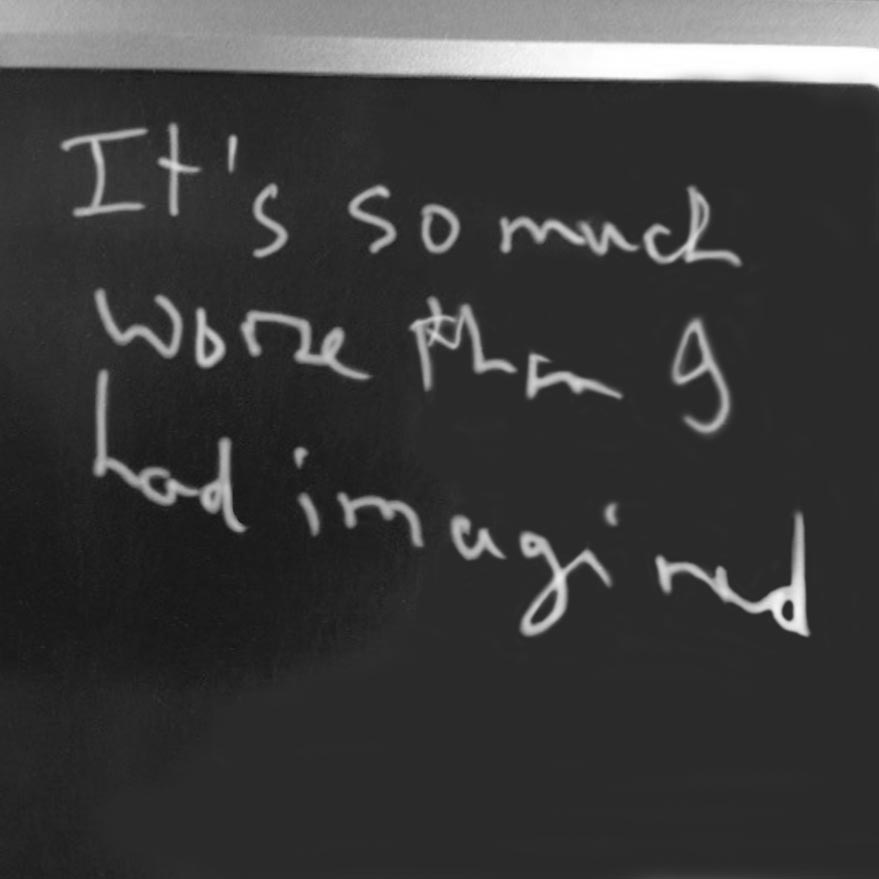 It's so much
worse than I
had imagined